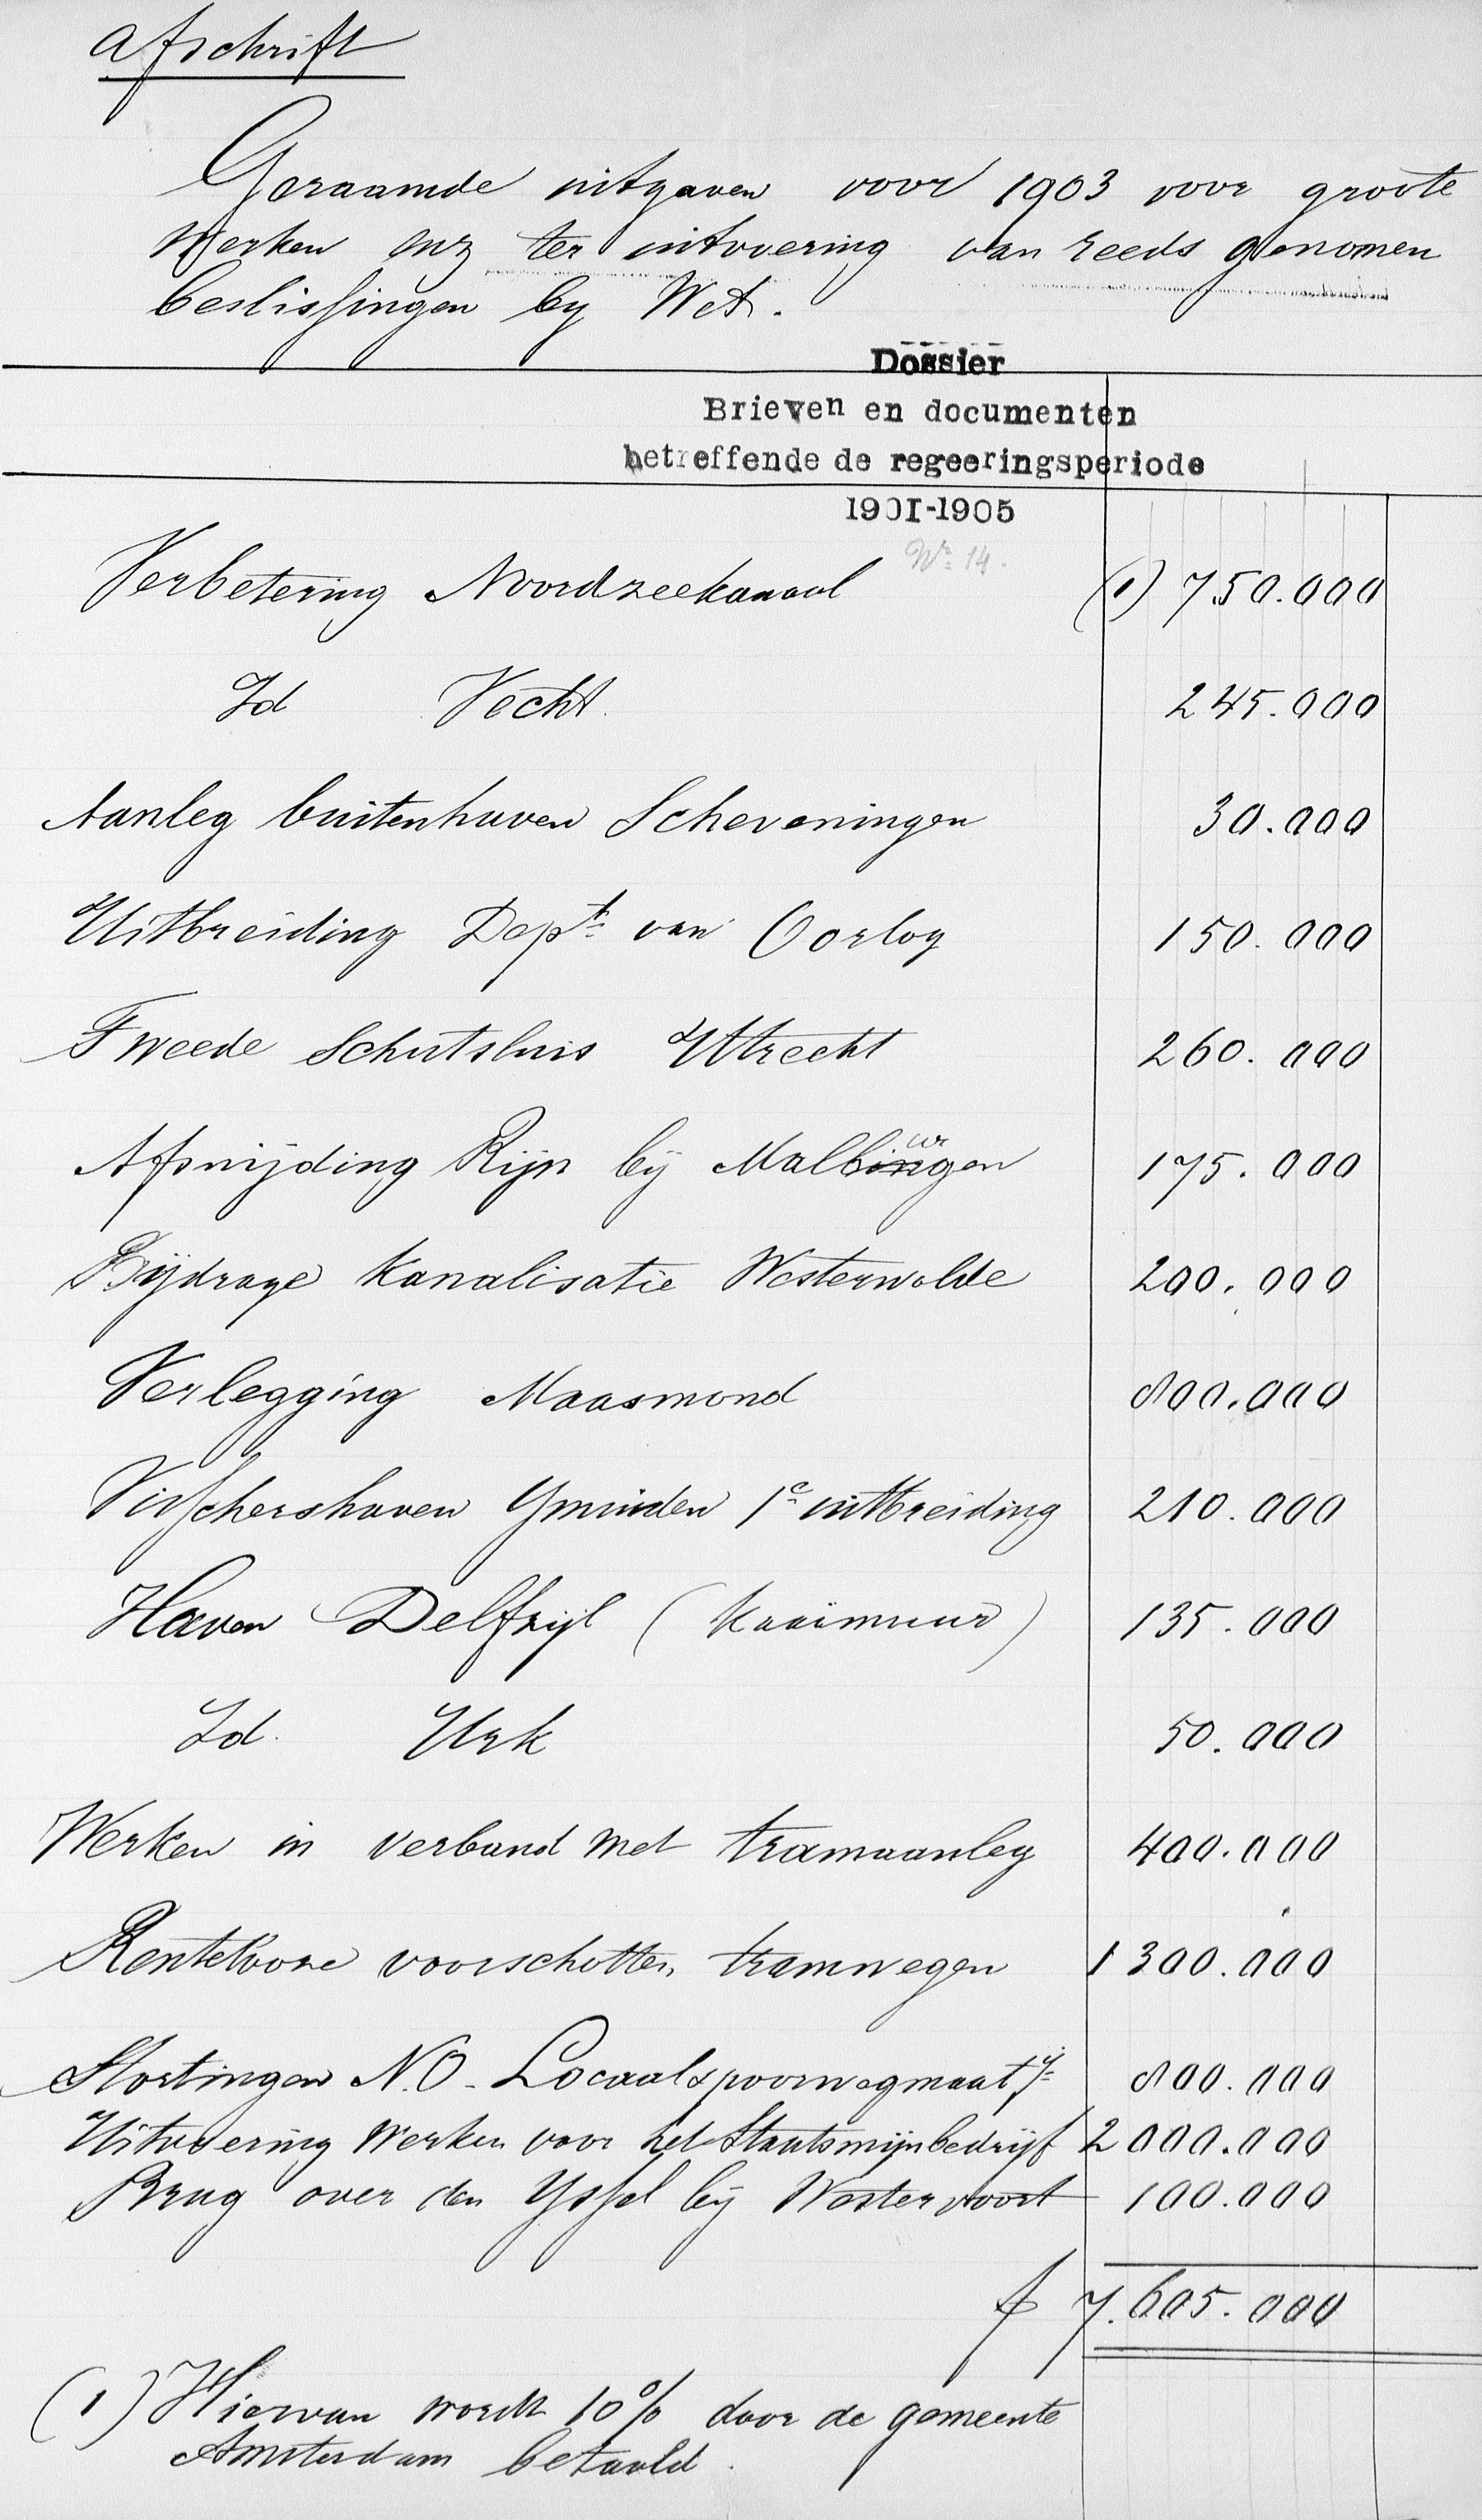 Afschrift
Geraamde uitgaven voor 1903 voor groote
Werken enz ter uitvoering van reeds genomen
beslissingen by Wet.
Dossier
Brieven en documenten
betreffende de regeeringsperiode
1901-1905
No. 14.
Verbetering Noordzeekanaal (1) 750.000
Id Vecht. 245.000
Aanleg buitenhaven Scheveningen 30.000
Uitbreiding Dept. van Oorlog 150.000
Tweede Schutsluis Utrecht 260.000
Afsnijding Rijn bij Malburgen 175.000
Bijdrage Kanalisatie Westerwolde 200.000
Verlegging Maasmond 800.000
Visschershaven Ymuiden 1e uitbreiding 210.000
Haven Delfzijl (Kaaimuur) 135.000
Id. Urk 50.000
Werken in verband met tramaanleg 400.000
Rentelooze voorschotten tramwegen 1300.000
Stortingen N.O. Locaalspoorwegmaatij 800.000
Uitvoering Werken voor het Staatsmijnbedrijf 2000.000
Brug over den Yssel bij Westervoort 100.000
f 7.605.000
(1) Hiervan wordt 10% door de gemeente
Amsterdam betaald.